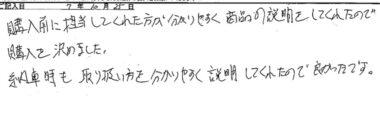 ご記入日 7年10月25日
購入前に担当してくれた方が分かりやすく商品の説明をしてくれたので
購入を決めました。
納車時も取り扱い方を分かりやすく説明してくれたので良かったです。